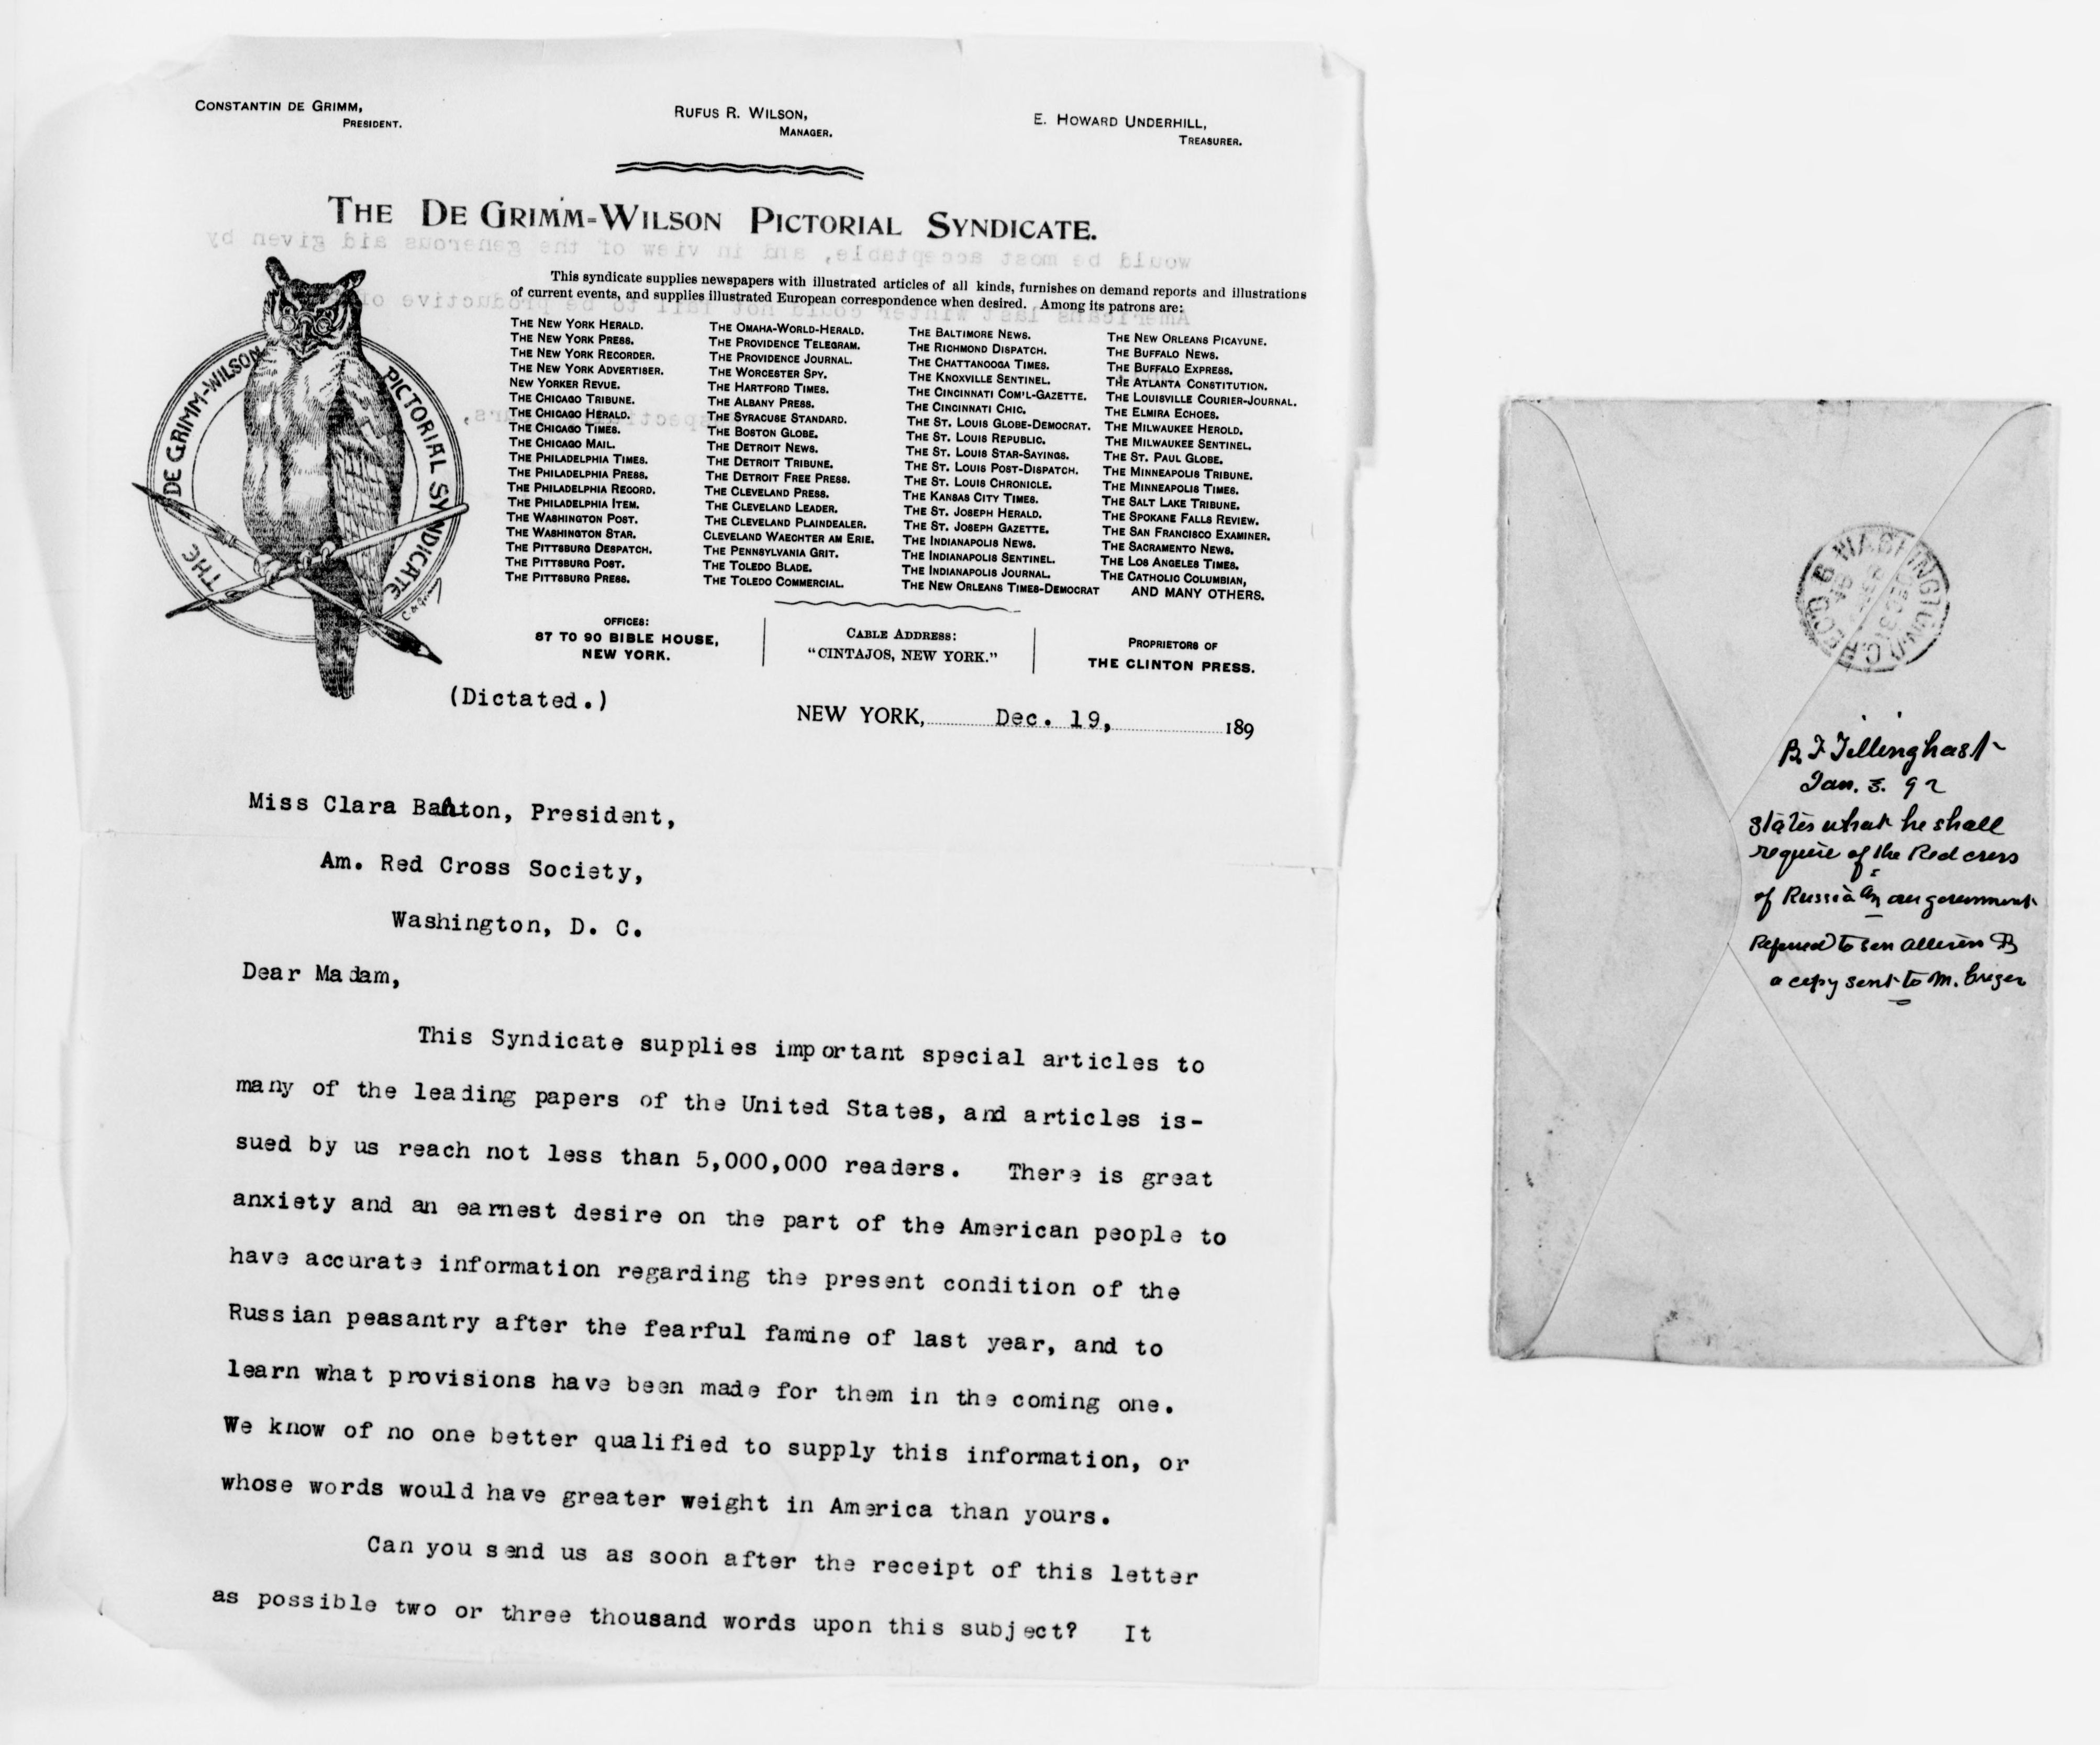 CONSTANTIN DE GRIMM,
PRESIDENT.
RUFUS R. WILSON,
MANAGER.
E. HOWARD UNDERHILL,
TREASURER.
THE DE GRIMM-WILSON PICTORIAL SYNDICATE.
This syndicate supplies newspapers with illustrated articles of all kinds, furnishes on demand reports and illustrations
of current events, and supplies illustrated European correspondence when desired. Among its patrons are:
THE NEW YORK HERALD.
THE NEW YORK PRESS.
THE NEW YORK RECORDER.
THE NEW YORK ADVERTISER.
NEW YORKER REVUE.
THE CHICAGO TRIBUNE.
THE CHICAGO HERALD.
THE CHICAGO TIMES.
THE CHICAGO MAIL.
THE PHILADELPHIA TIMES.
THE PHILADELPHIA PRESS.
THE PHILADELPHIA RECORD.
THE PHILADELPHIA ITEM.
THE WASHINGTON POST.
THE WASHINGTON STAR.
THE PITTSBURG DESPATCH.
THE PITTSBURG POST.
THE PITTSBURG PRESS.
THE OMAHA-WORLD-HERALD.
THE PROVIDENCE TELEGRAM.
THE PROVIDENCE JOURNAL.
THE WORCESTER SPY.
THE HARTFORD TIMES.
THE ALBANY PRESS.
THE SYRACUSE STANDARD.
THE BOSTON GLOBE.
THE DETROIT NEWS.
THE DETROIT TRIBUNE.
THE DETROIT FREE PRESS.
THE CLEVELAND PRESS.
THE CLEVELAND LEADER.
THE CLEVELAND PLAINDEALER.
CLEVELAND WAECHTER AM ERIE.
THE PENNSYLVANIA GRIT.
THE TOLEDO BLADE.
THE TOLEDO COMMERCIAL.
THE BALTIMORE NEWS.
THE RICHMOND DISPATCH.
THE CHATTANOOGA TIMES.
THE KNOXVILLE SENTINEL.
THE CINCINNATI COM'L-GAZETTE.
THE CINCINNATI CHIC.
THE ST. LOUIS GLOBE-DEMOCRAT.
THE ST. LOUIS REPUBLIC.
THE ST. LOUIS STAR-SAYINGS.
THE ST. LOUIS POST-DISPATCH.
THE ST. LOUIS CHRONICLE.
THE KANSAS CITY TIMES.
THE ST. JOSEPH HERALD.
THE ST. JOSEPH GAZETTE.
THE INDIANAPOLIS NEWS.
THE INDIANAPOLIS SENTINEL.
THE INDIANAPOLIS JOURNAL.
THE NEW ORLEANS TIMES-DEMOCRAT
THE NEW ORLEANS PICAYUNE.
THE BUFFALO NEWS.
THE BUFFALO EXPRESS.
THE ATLANTA CONSTITUTION.
THE LOUISVILLE COURIER-JOURNAL.
THE ELMIRA ECHOES.
THE MILWAUKEE HEROLD.
THE MILWAUKEE SENTINEL.
THE ST. PAUL GLOBE.
THE MINNEAPOLIS TRIBUNE.
THE MINNEAPOLIS TIMES.
THE SALT LAKE TRIBUNE.
THE SPOKANE FALLS REVIEW.
THE SAN FRANCISCO EXAMINER.
THE SACRAMENTO NEWS.
THE LOS ANGELES TIMES.
THE CATHOLIC COLUMBIAN,
AND MANY OTHERS.
THE DE GRIMM-WILSON PICTORIAL SYNDICATE
OFFICES:
87 TO 90 BIBLE HOUSE,
NEW YORK.
CABLE ADDRESS:
"CINTAJOS, NEW YORK."
PROPRIETORS OF
THE CLINTON PRESS.
(Dictated.)
NEW YORK, Dec. 19, 189
Miss Clara Barton, President,
Am. Red Cross Society,
Washington, D. C.
Dear Madam,
This Syndicate supplies important special articles to
many of the leading papers of the United States, and articles is-
sued by us reach not less than 5,000,000 readers. There is great
anxiety and an earnest desire on the part of the American people to
have accurate information regarding the present condition of the
Russian peasantry after the fearful famine of last year, and to
learn what provisions have been made for them in the coming one.
We know of no one better qualified to supply this information, or
whose words would have greater weight in America than yours.
Can you send us as soon after the receipt of this letter
as possible two or three thousand words upon this subject? It
WASHINGTON
B F Tillinghast
Jan. 3. 92
States what he shall
require of the Red cross
of Russia our government
Referred to
a copy sent to M.